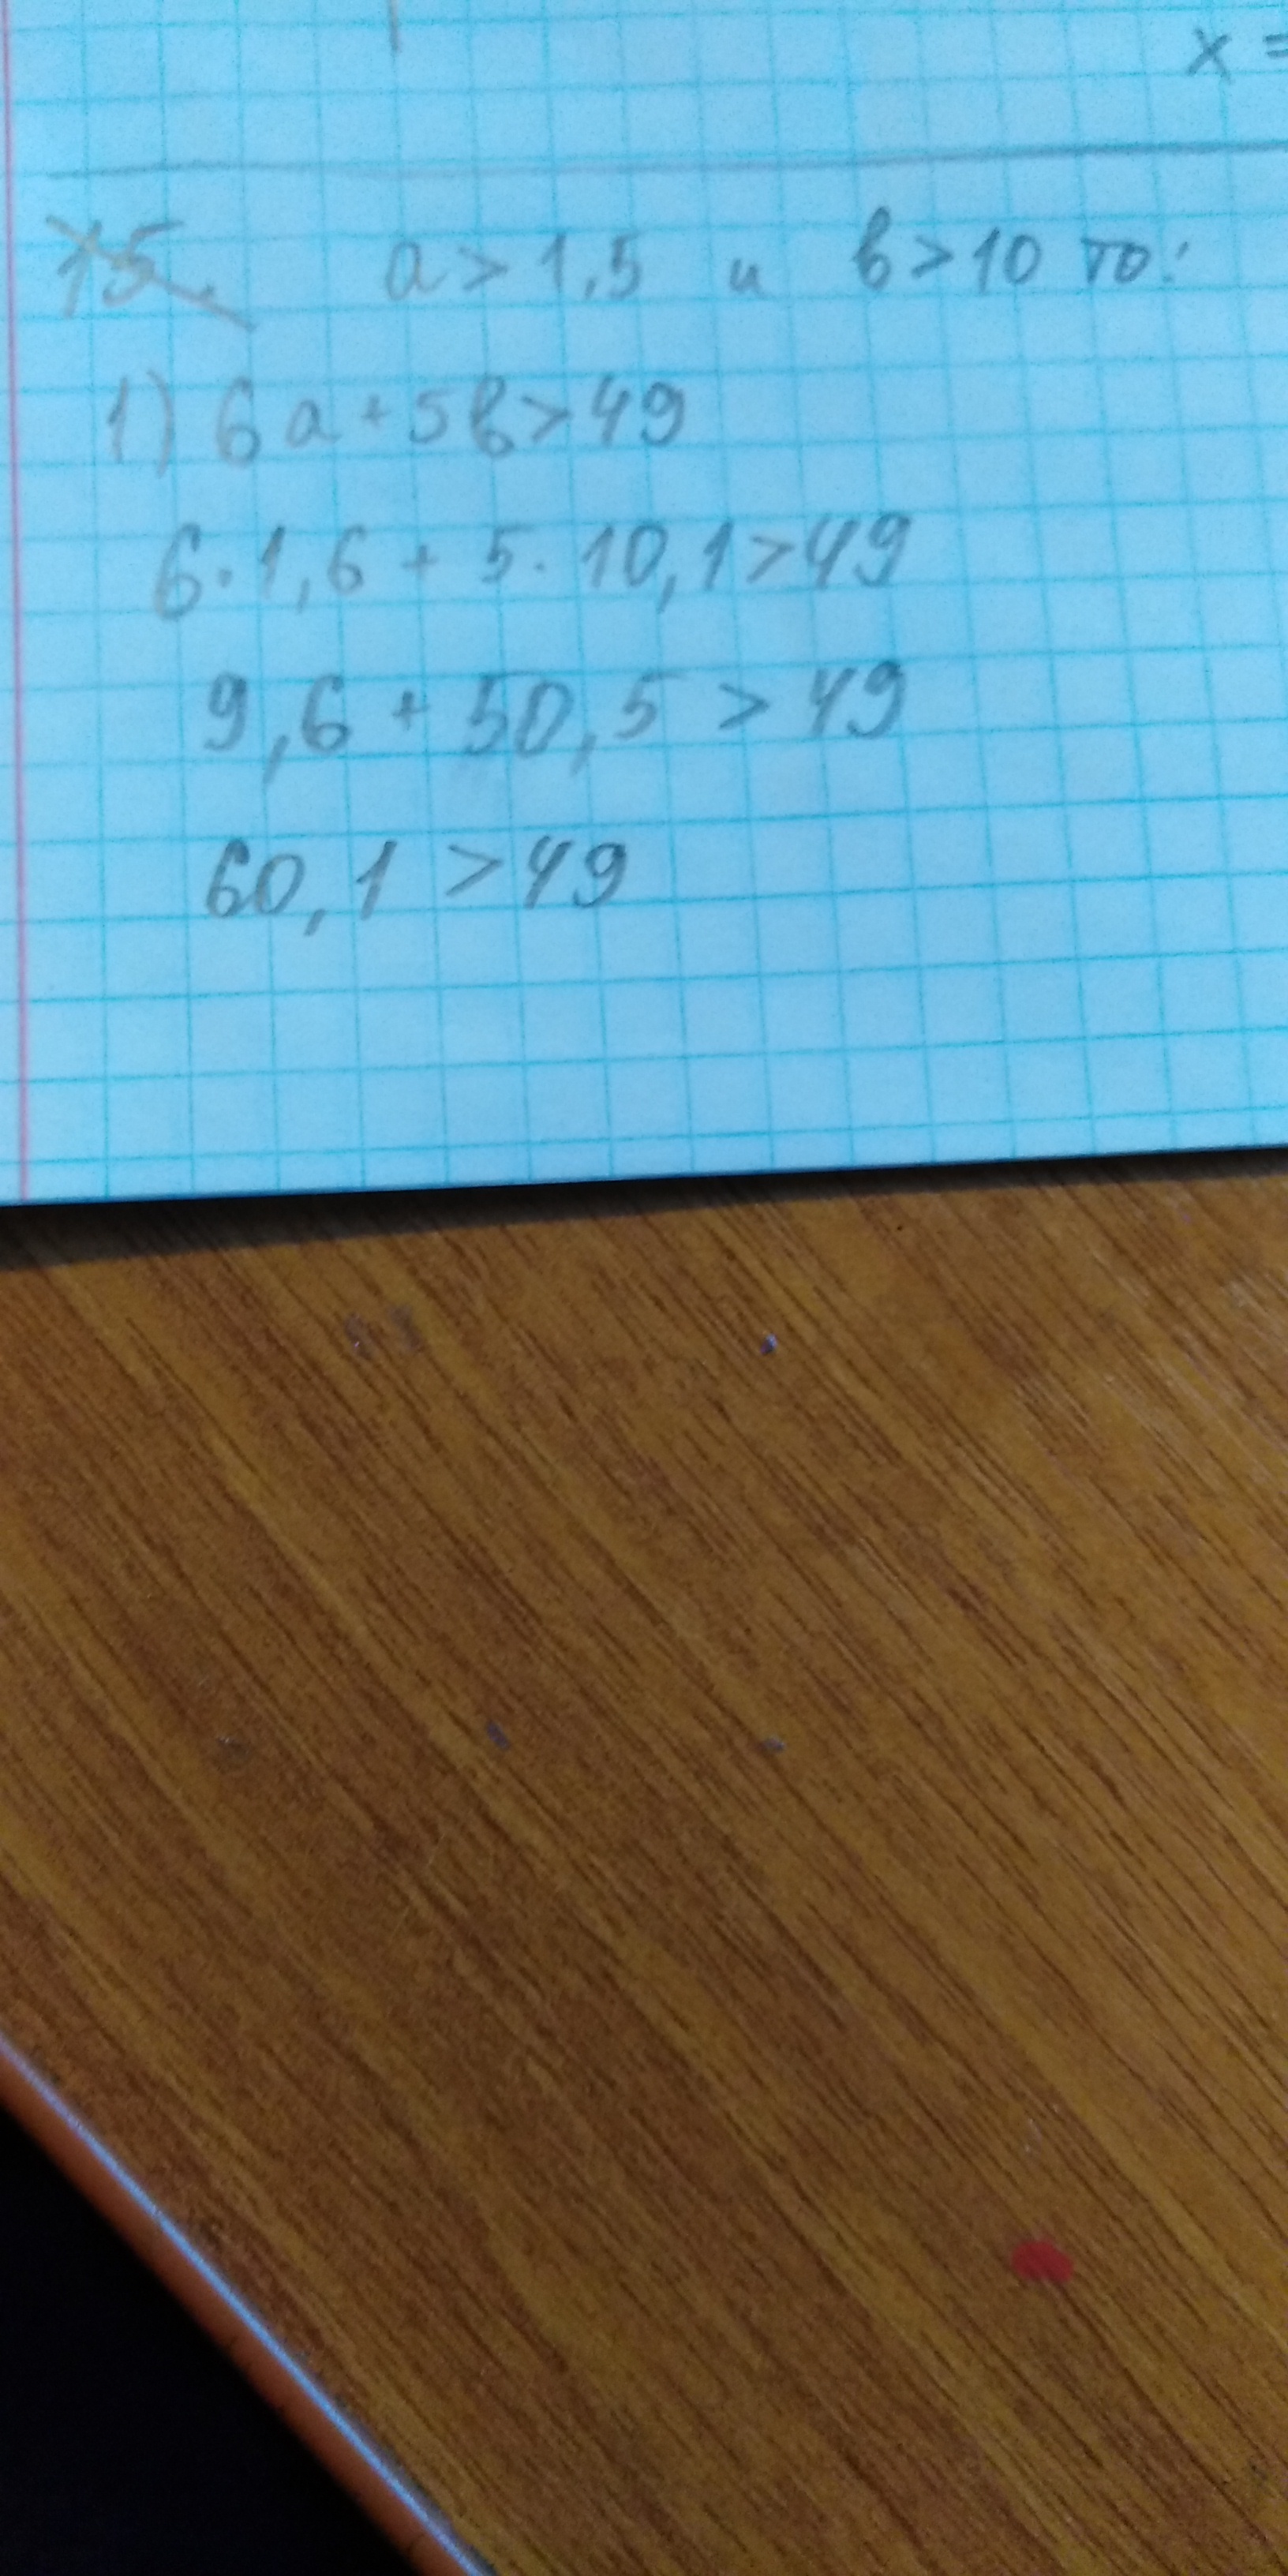 x =
15. a > 1,5 и в > 10 то:
1) 6a + 5в > 49
6 · 1,6 + 5 · 10,1 > 49
9,6 + 50,5 > 49
60,1 > 49